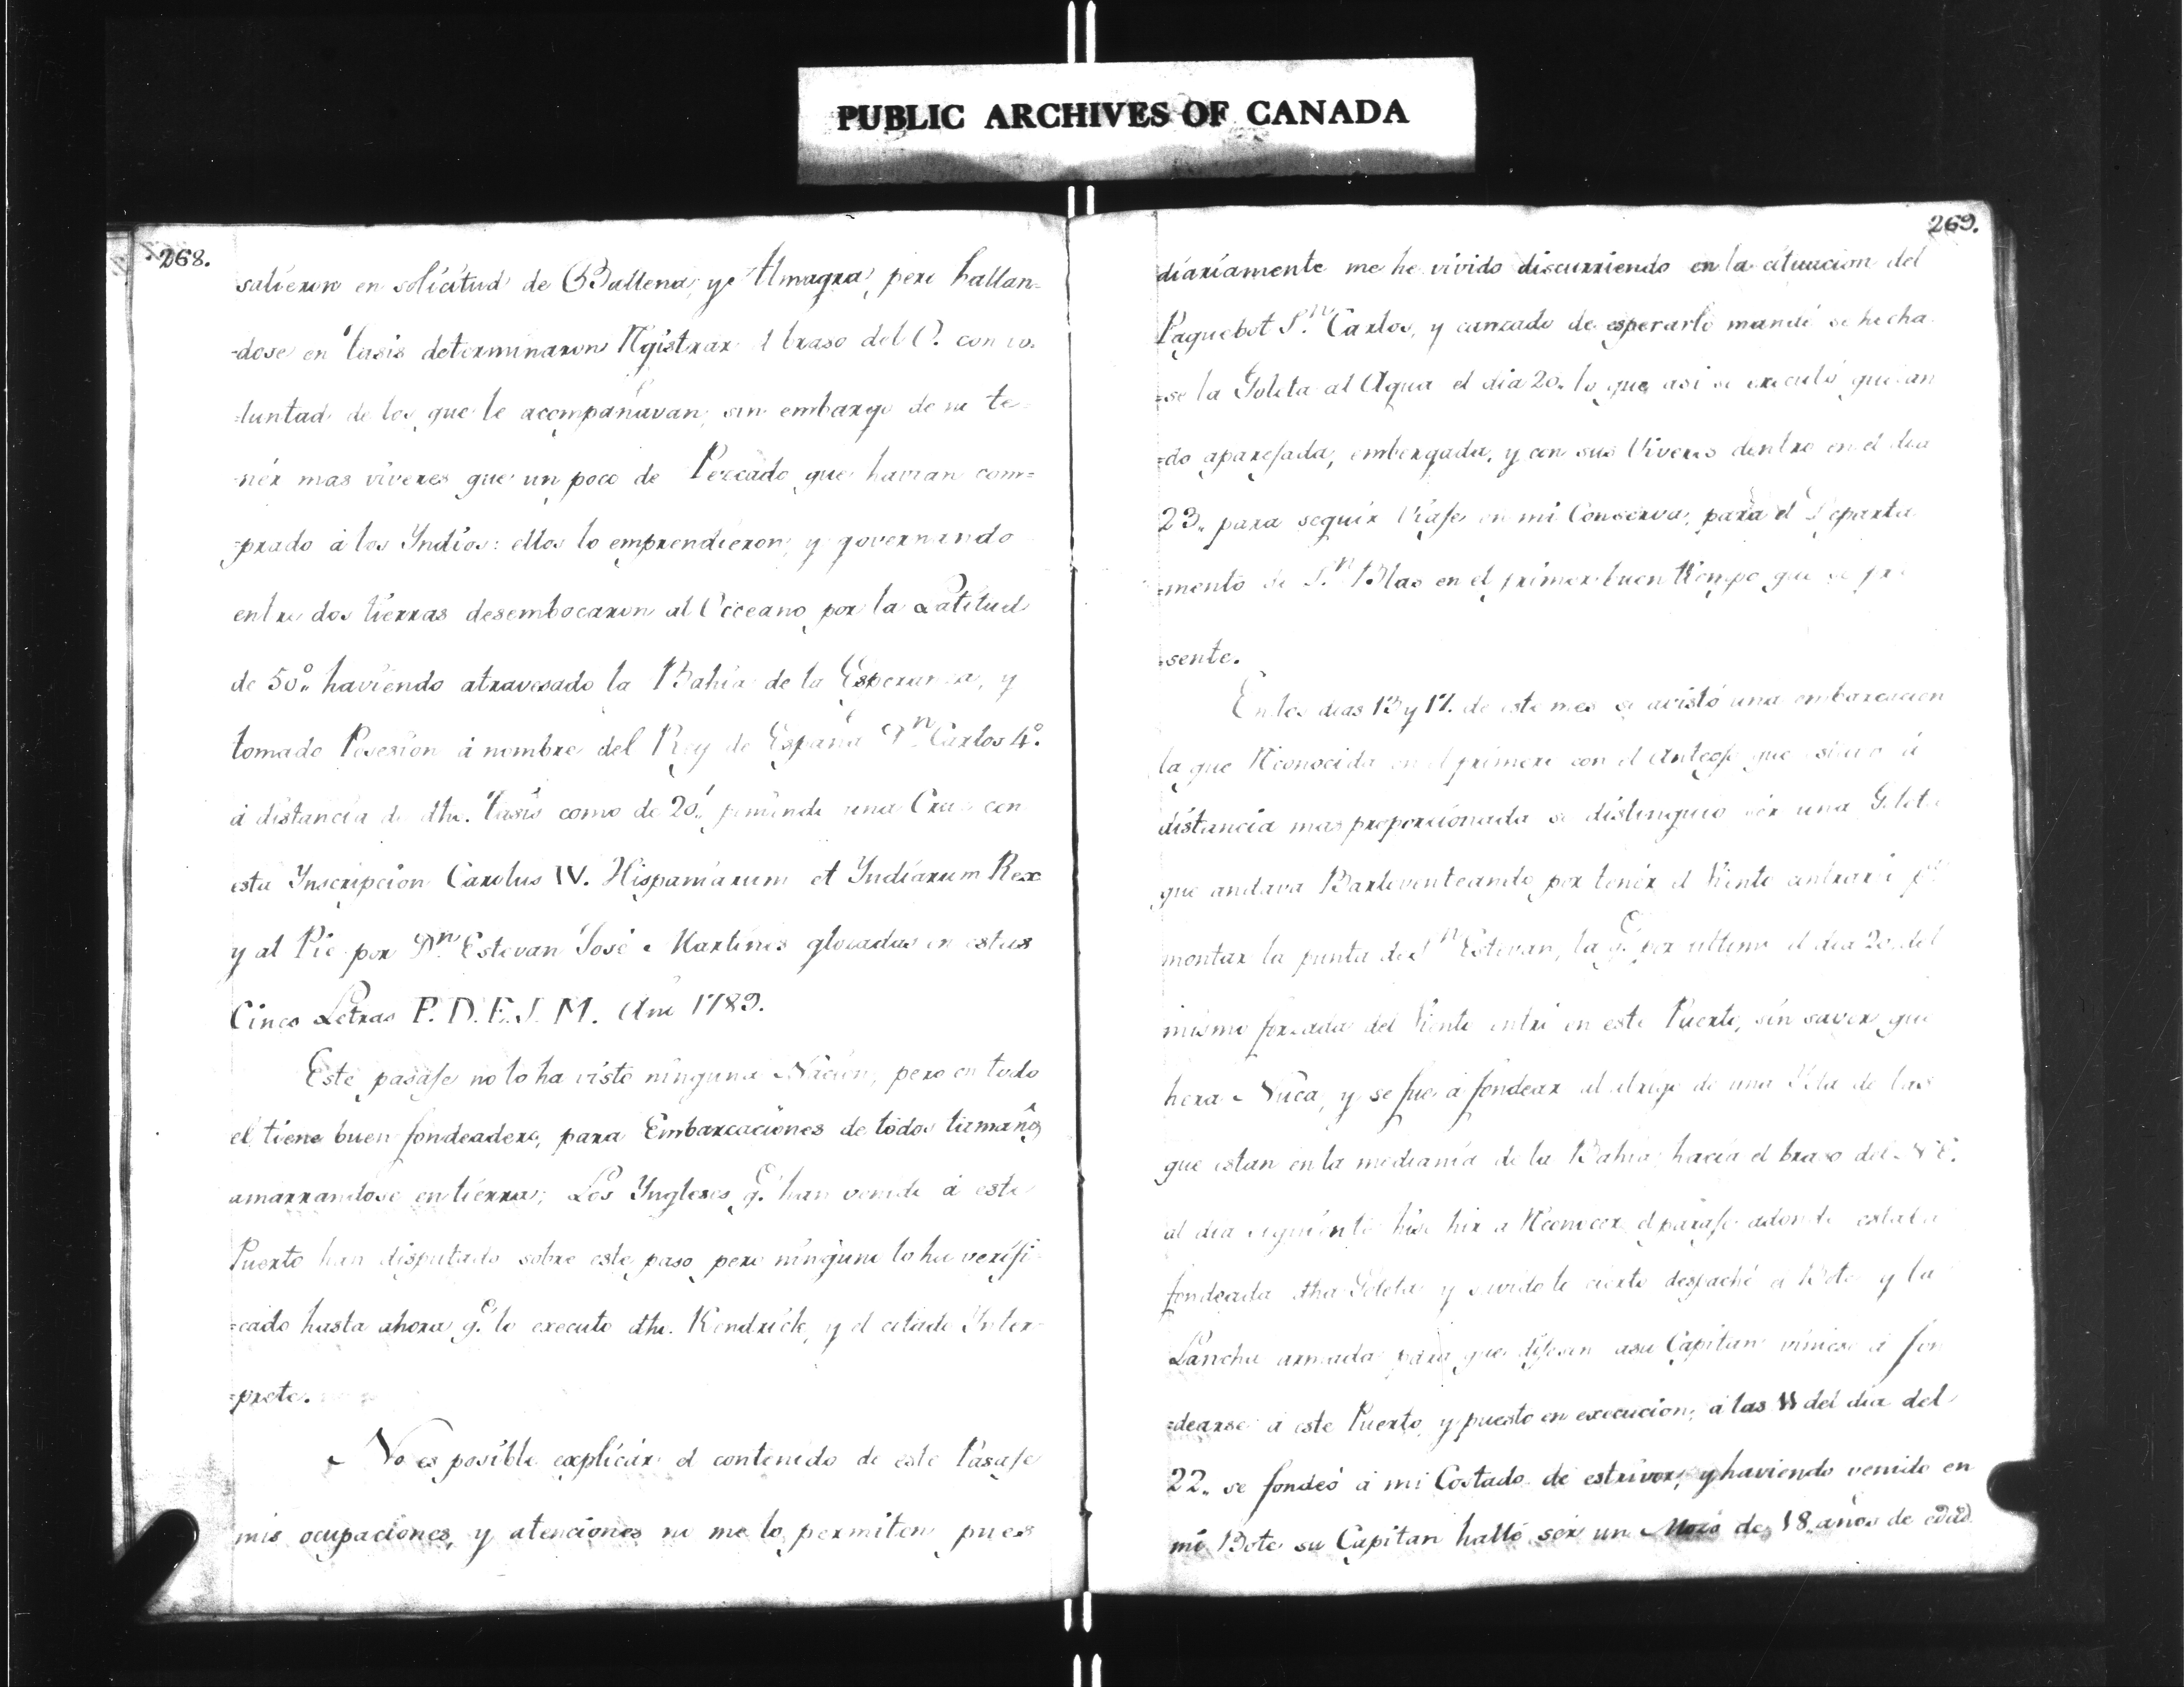 PUBLIC ARCHIVES OF CANADA
268.
salieron en solicitud de Ballena, y Almagra, pero hallan-
-dose en Tasis determinaron Rgistrar el braso del O. con vo-
-luntad de los que le acompañavan, sin embargo de no te-
-nér mas viveres que un poco de Pezcado que havian com=
-prado á los Yndios: ellos lo emprendieron, y governando
entre dos tierras desembocaron al Occeano por la Latitud
de 50°. haviendo atravesado la Bahia de la Esperanza, y
tomado Posesion á nombre del Rey de España Dn. Carlos 4°.
á distancia de dho. Tasis como de 20.' poniendo una Cruz con
esta Ynscripcion Carolus IV. Hispaniarum et Yndiarum Rex
y al Pie por Dn. Estevan José Martines glosadas en estas
Cinco Letras P. D. E. J. M. Año 1789.
Este pasaje no lo ha visto ninguna Nacion, pero en todo
el tiene buen fondeadero, para Embarcaciones de todos tamaños
amarrandose en tierra; Los Yngleses q.e han venido á este
Puerto han disputado sobre este paso pero ninguno lo ha verifi-
=cado hasta ahora q.e lo executo dho. Kendrick, y el citado Ynter-
=prete.
No es posible explicar el contenido de este Pasaje
mis ocupaciones, y atenciones no me lo permiten, pues
269.
diariamente me he vivido discurriendo en la cituacion del
Paquebot S.n Carlos, y canzado de esperarlo mandé se hecha-
=se la Goleta al Agua el dia 20. lo que asi se executó quedan
=do aparejada, embergada, y con sus Viveres dentro en el dia
23. para seguir Viaje en mi Conserva, para el Departa
=mento de S.n Blas en el primer buen tiempo que se pre
=sente.
En los dias 13 y 17. de este mes se avistó una embarcacion
la que Rconocida en el primero con el Anteojo que estuvo á
distancia mas proporcionada se distinguio sér una Goleta
que andava Barloventeando por tenér el Viento contrario p.a
montar la punta de S.n Estevan, la q.e por ultimo el dia 20. del
mismo forzada del Viento entró en este Puerto, sin saver que
hera Nuca, y se fue á fondear al abrigo de una Ysla de las
que estan en la mediania de la Bahia hacia el braso del NE.
al dia siguiente hise hir a Rconocer el paraje adonde estaba
fondeada dha Goleta y savido lo cierto despaché el Bote y la
Lancha armada para que dijesen asu Capitan viniese á fon
=dearse á este Puerto, y puesto en execucion, á las 11 del dia del
22. se fondeó á mi Costado de estrivor, y haviendo venido en
mi Bote su Capitan hallé ser un Mozo de 18. años de edad